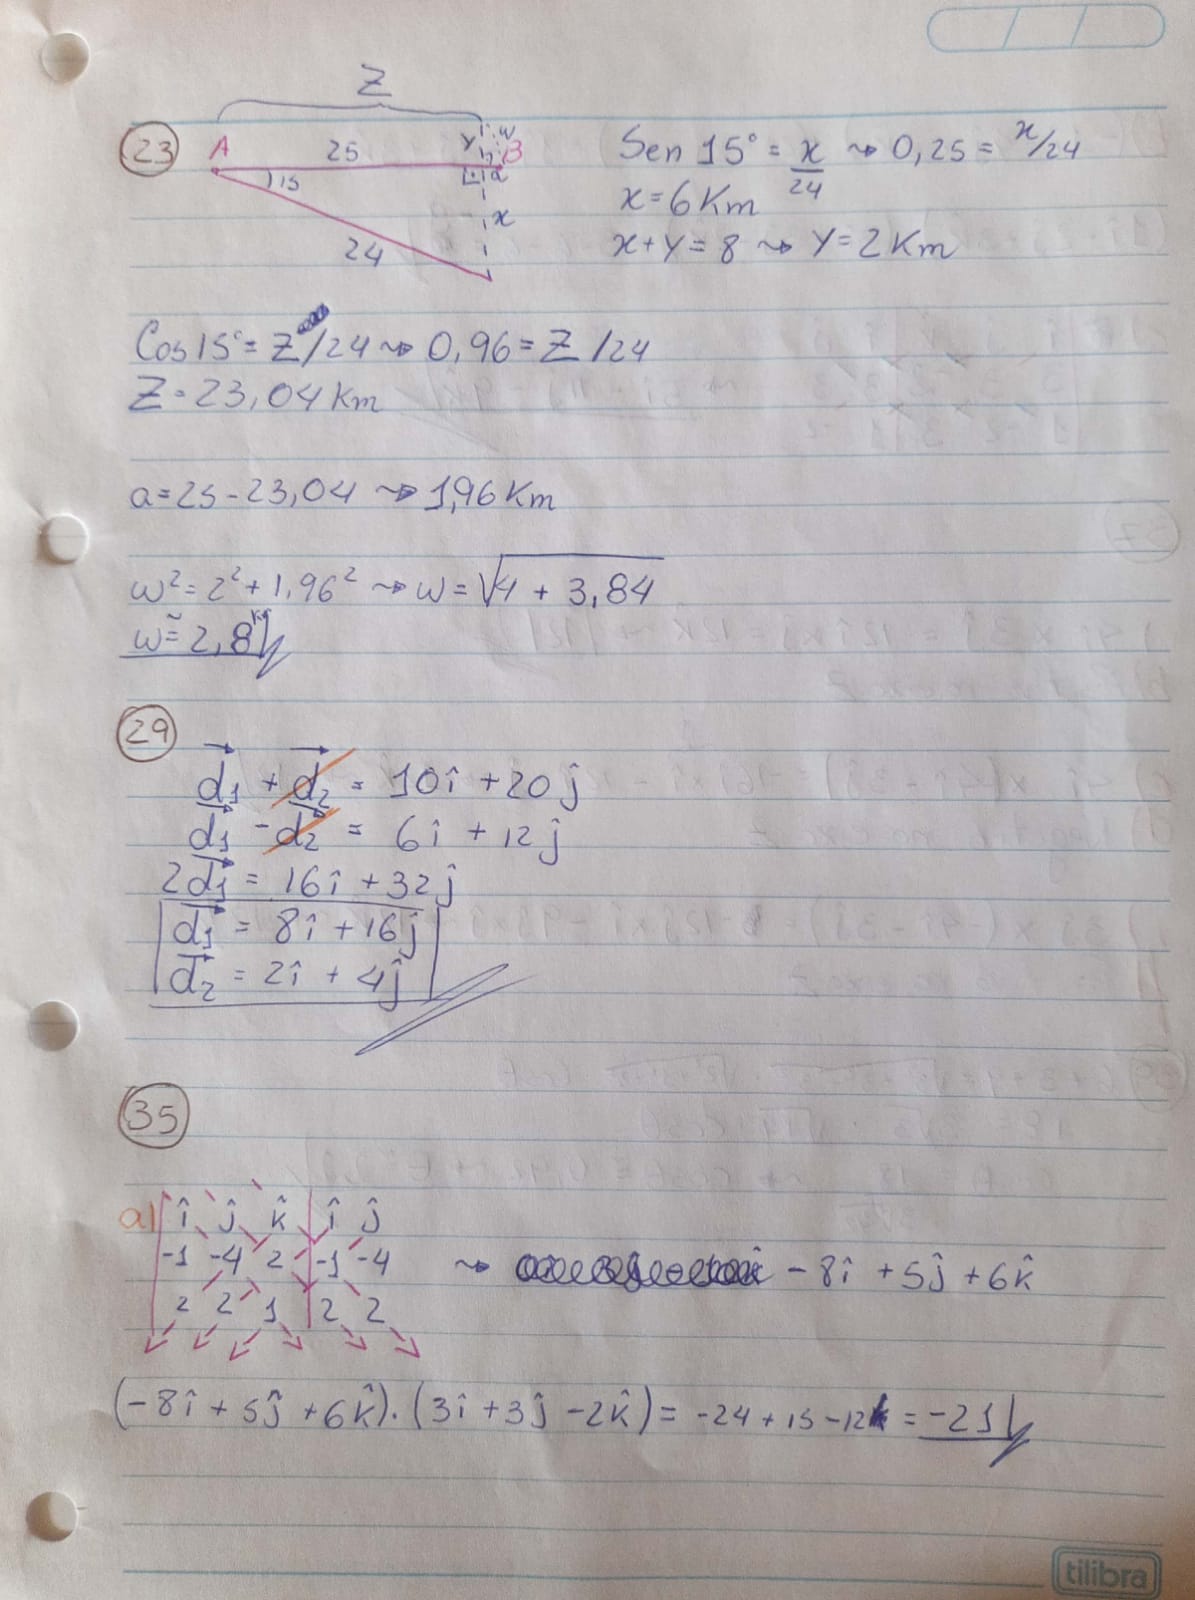 Z
23
A 25 y w B
15 a
x
24
Sen 15° = x/24 ⇝ 0,25 = x/24
x = 6 Km
x + y = 8 ⇝ y = 2 Km
Cos 15° = Z/24 ⇝ 0,96 = Z/24
Z = 23,04 Km
a = 25 - 23,04 ⇝ 1,96 Km
w² = 2² + 1,96² ⇝ w = √4 + 3,84
w ≅ 2,8 km
29
d₁ + d₂ = 10î + 20ĵ
d₁ - d₂ = 6î + 12ĵ
2d₁ = 16î + 32ĵ
d₁ = 8î + 16ĵ
d₂ = 2î + 4ĵ
35
a) î ĵ k̂ î ĵ
-1 -4 2 -1 -4 ⇝ -8î + 5ĵ + 6k̂
2 2 1 2 2
(-8î + 5ĵ + 6k̂) · (3î + 3ĵ - 2k̂) = -24 + 15 - 12 = -21
tilibra